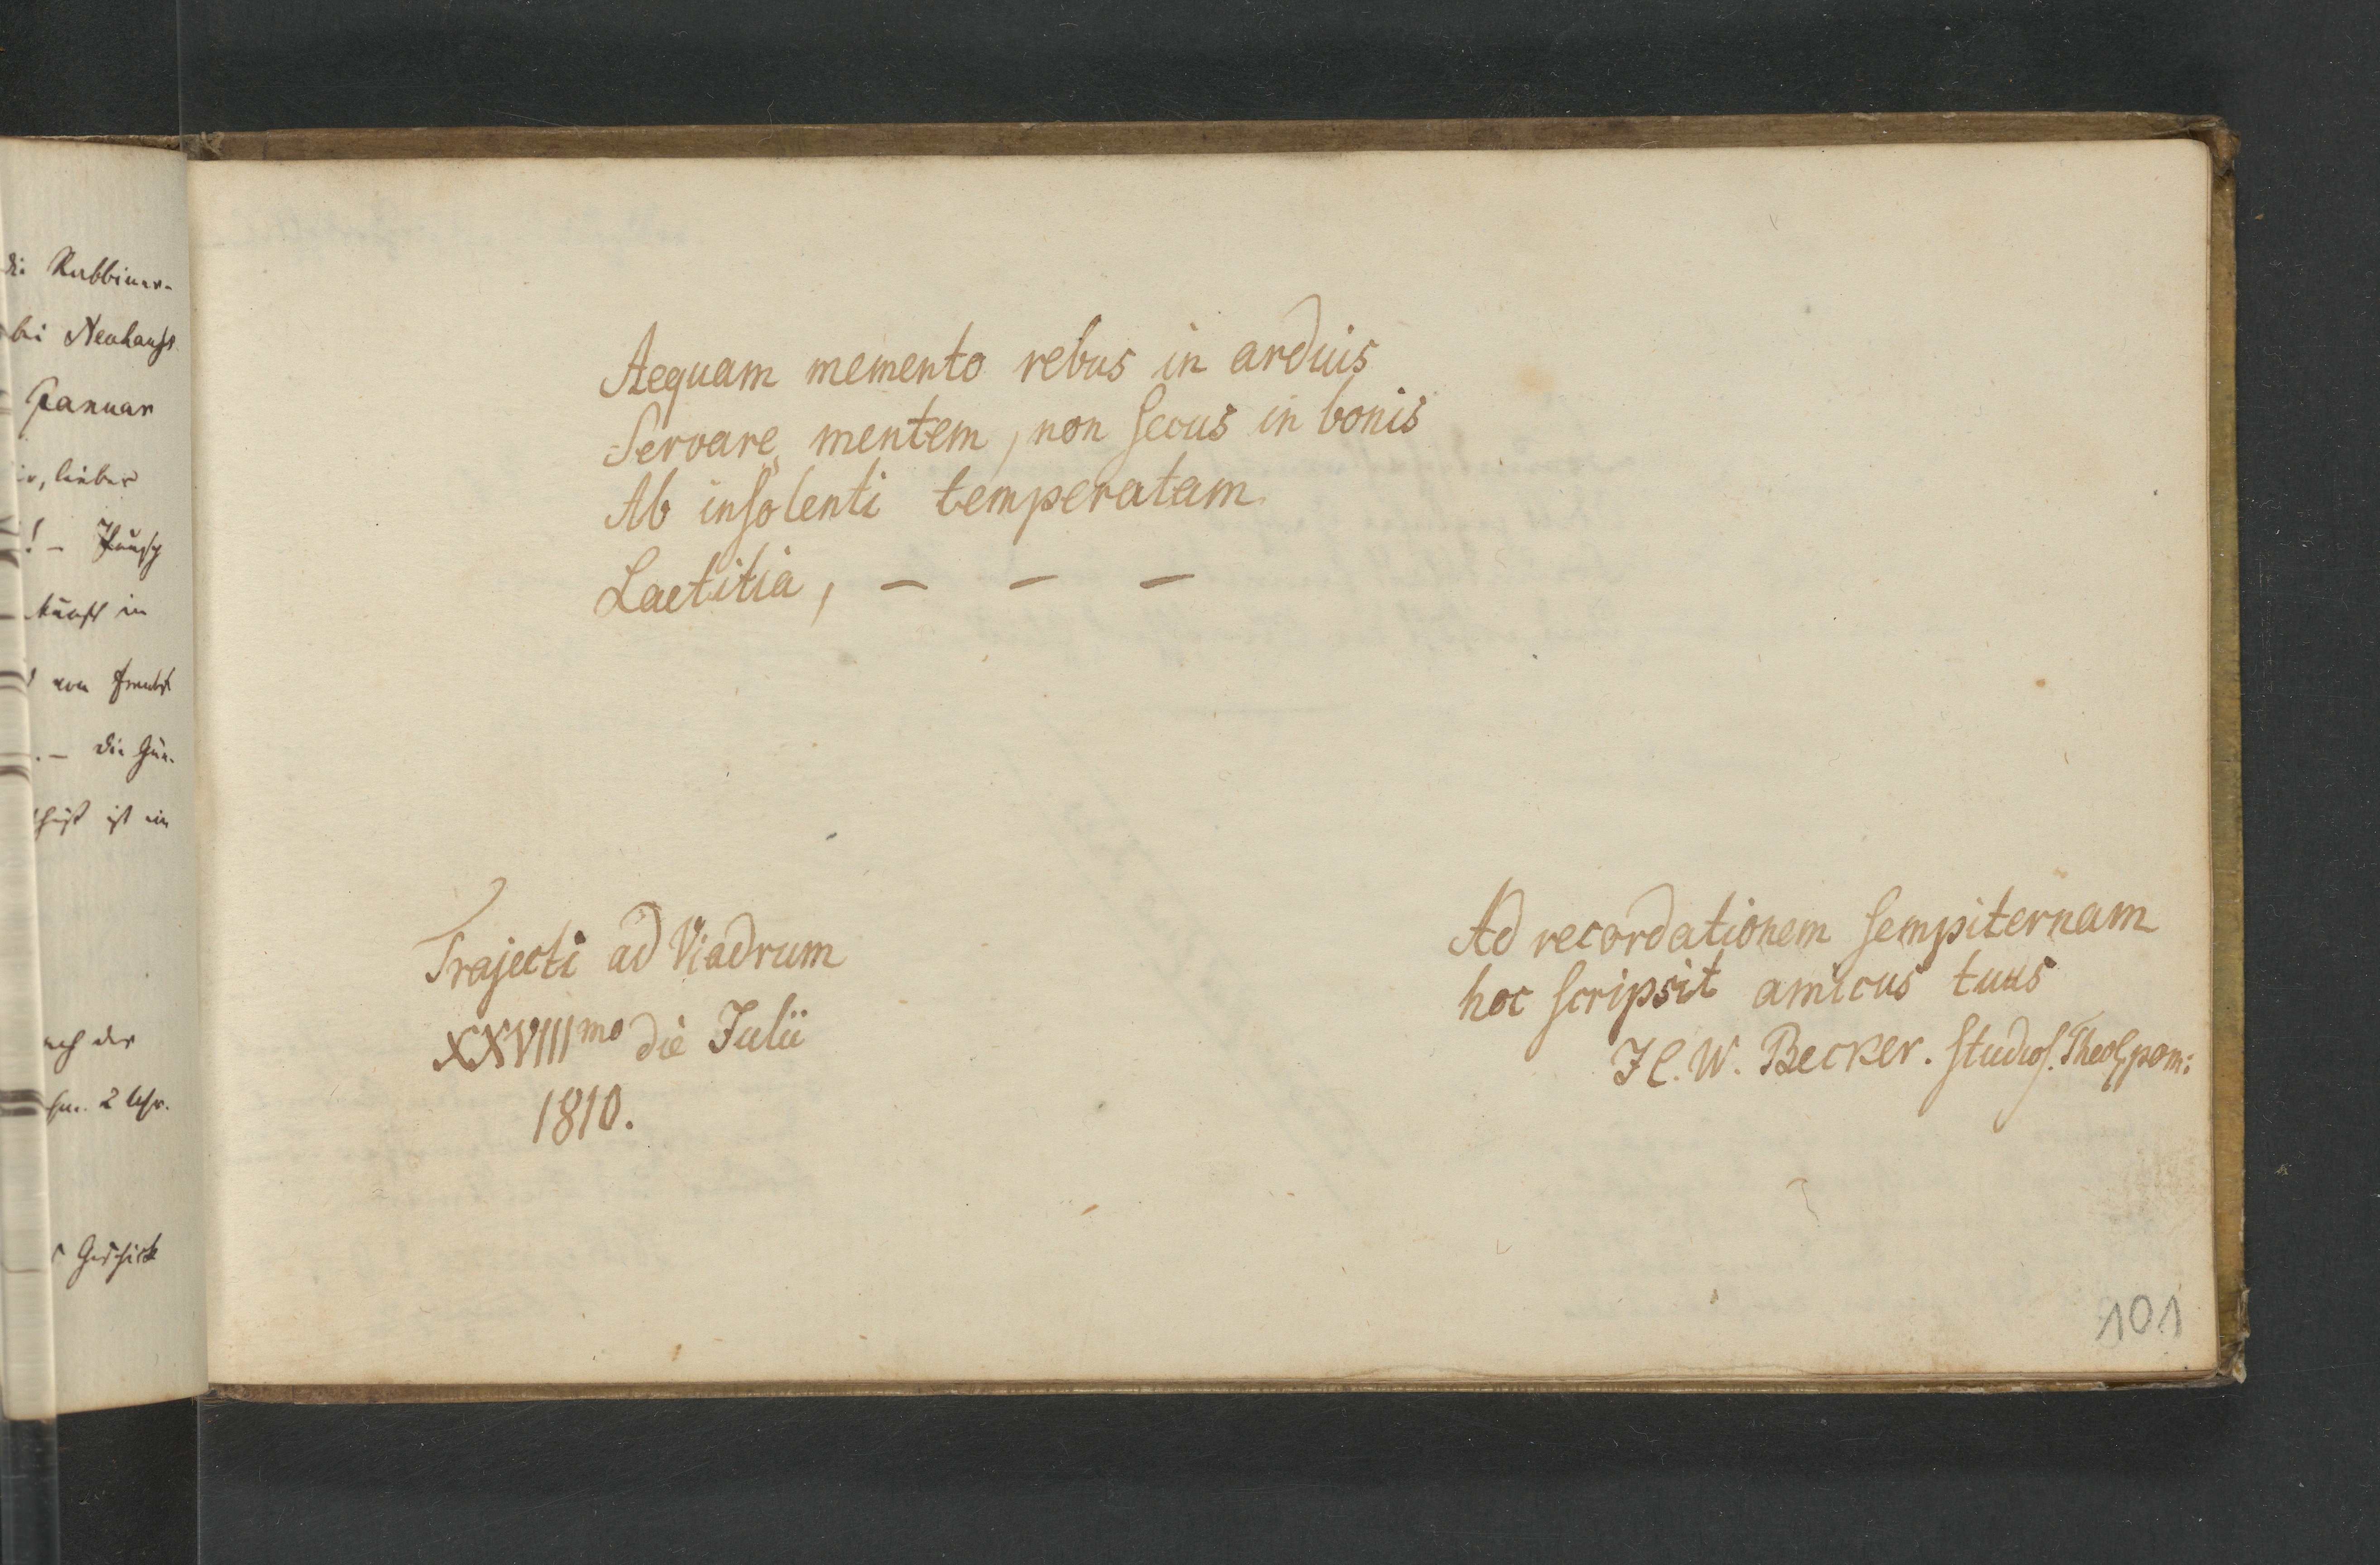 di Rabbiner-
bei Neuhauss
Januar
lieber
! –
in
von
. – die
ist in
der
2 Uhr.
Geschick
Aequam memento rebus in arduis
Servare mentem, non secus in bonis
Ab insolenti temperatam
Laetitia, – – –
Trajecti ad Viadrum
XXVIIImo die Julii
1810.
Ad recordationem sempiternam
hoc scripsit amicus tuus
W. Becker. studios. Theol. pom:
101